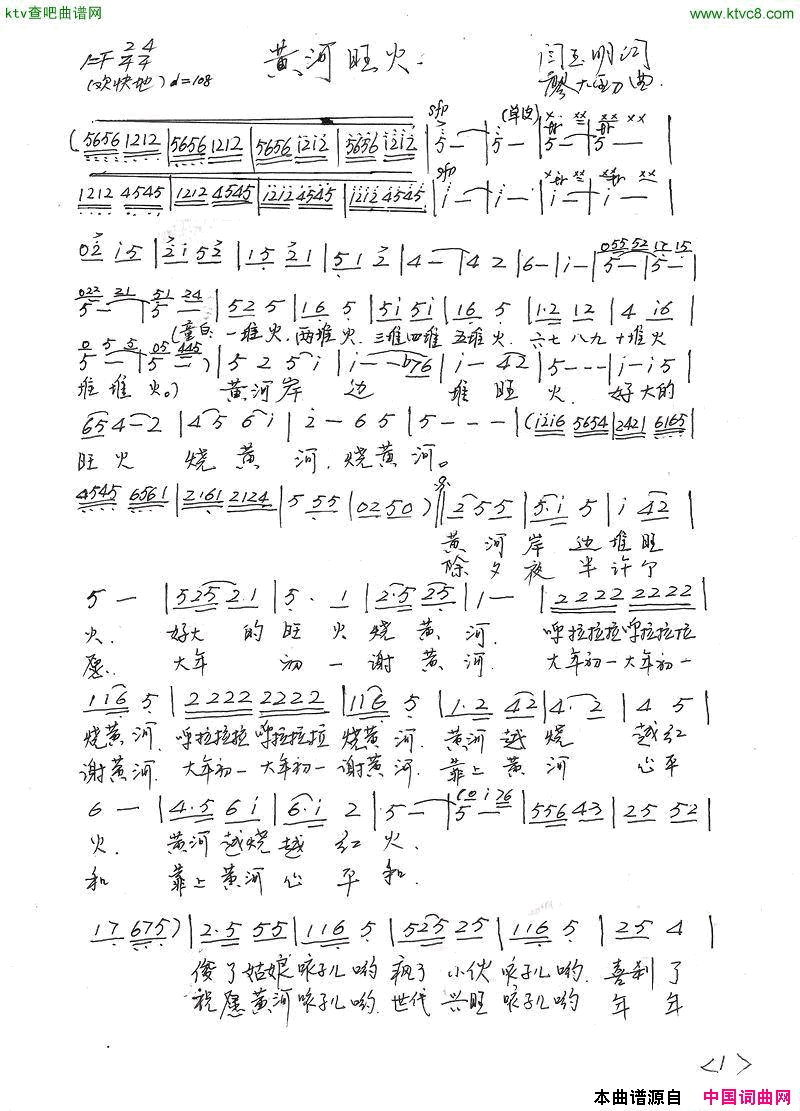 ktv查吧曲谱网
www.ktvc8.com
1=F 2/4 4/4
黄河旺火
闫玉明词
(欢快地) ♩=108
曲
sfp
(5656 1212 | 5656 1212 | 5656 1212 | 5656 1212 | 5— | 5— | 5— | 5—
sfp
1212 4545 | 1212 4545 | 1212 4545 | 1212 4545 | i— | i— | i— | i— |
02 i5 | 2i 52 | 15 21 | 51 2 | 4— | 4 2 | 6— | i— | 5— | 5— |
055 52 12 15
022 21 51 24
5— | 5— | 52 5 | 16 5 | 5i 5i | 16 5 | 1·2 12 | 4 i6 |
(童白: 一堆火, 两堆火, 三堆四堆 五堆火, 六七八九 十堆火
0 5 5 05 445
5— | 5— ) | 5 2 5 i | i— — b76 | i— 42 | 5--- | i—i5 |
堆堆火。) 黄河岸边 堆旺火. 好大的
65 4—2 | 45 6i | 2—65 | 5--- | (i2i6 5654 | 2421 6165 |
旺火 烧黄河, 烧黄河。
4545 6561 | 2·161 2124 | 5 55 | 02 50 ) || 2 55 | 5·i 5 | i 42 |
黄河岸边堆旺
除夕夜半许个
5 — | 525 2·1 | 5· 1 | 2·5 25 | 1— | 2222 2222 |
火. 好大的旺火烧黄河. 呼拉拉拉呼拉拉拉
愿. 大年初一谢黄河. 大年初一大年初一
116 5 | 2222 2222 | 116 5 | 1·2 42 | 4·2 | 4 5
烧黄河, 呼拉拉拉呼拉拉拉 烧黄河. 黄河越烧越红
谢黄河. 大年初一大年初一谢黄河. 靠上黄河心平
6 — | 4·5 6i | 6·i 2 | 5— | 5— | 556 43 | 25 52 |
(0 i 76
火. 黄河越烧越红火.
和 靠上黄河心平和.
17 675) | 2·5 55 | 116 5 | 525 25 | 116 5 | 25 4 |
俊了姑娘咴子儿哟 疯了小伙咴子儿哟. 喜刹了
祝愿黄河咴子儿哟. 世代兴旺咴子儿哟 年年
<1>
本曲谱源自 中国词曲网